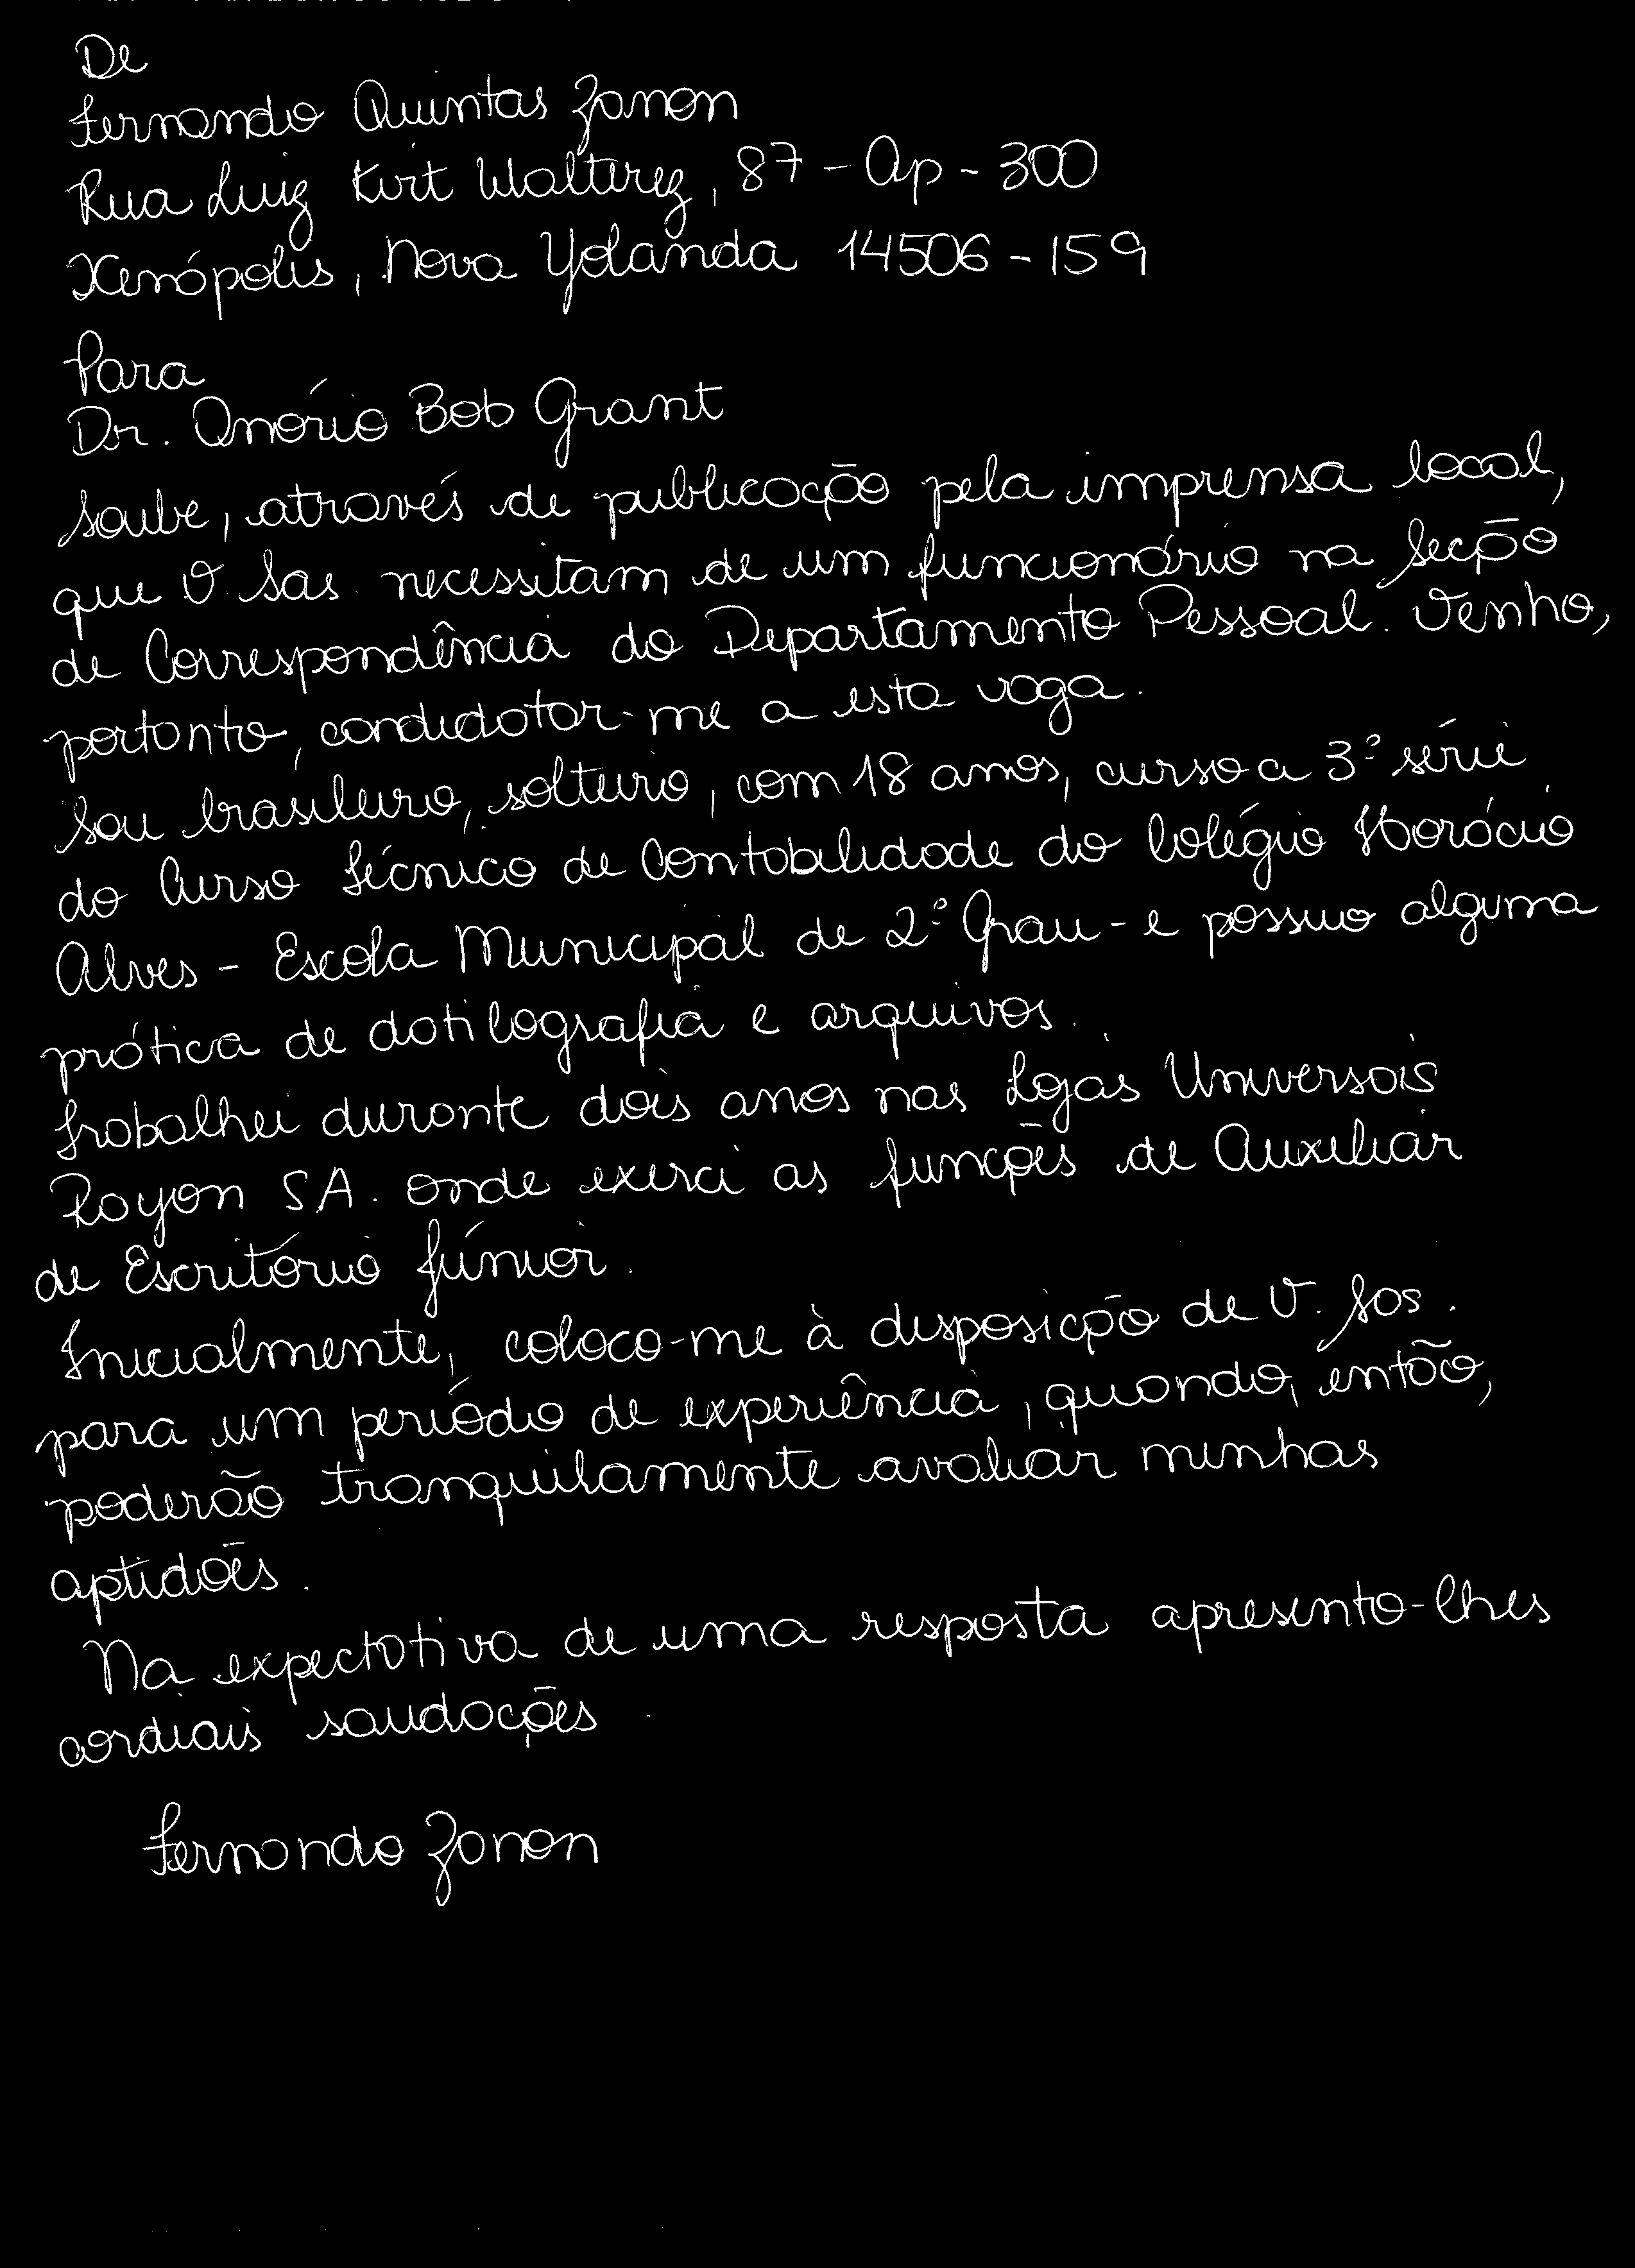 De
Fernando Quintas Zanon
Rua Luiz Kirt Walterez, 87 - Ap - 300
Xenópolis, Nova Yolanda 14506-159
Para
Dr. Onório Bob Grant
Soube, através de publicação pela imprensa local,
que V. Sas. necessitam de um funcionário na Secção
de Correspondência do Departamento Pessoal. Venho,
portanto, candidatar-me a esta vaga.
Sou brasileiro, solteiro, com 18 anos, curso a 3ª série
do Curso Técnico de Contabilidade do Colégio Horácio
Alves - Escola Municipal de 2º Grau - e possuo alguma
prática de datilografia e arquivos.
Trabalhei durante dois anos nas Lojas Universais
Rayon SA. onde exerci as funções de Auxiliar
de Escritório Júnior.
Inicialmente, coloco-me à disposição de V. Sas.
para um periódio de experiência, quando, então,
poderão tranquilamente avaliar minhas
aptidões.
Na expectativa de uma resposta apresento-lhes
cordiais saudações.
Fernando Zanon